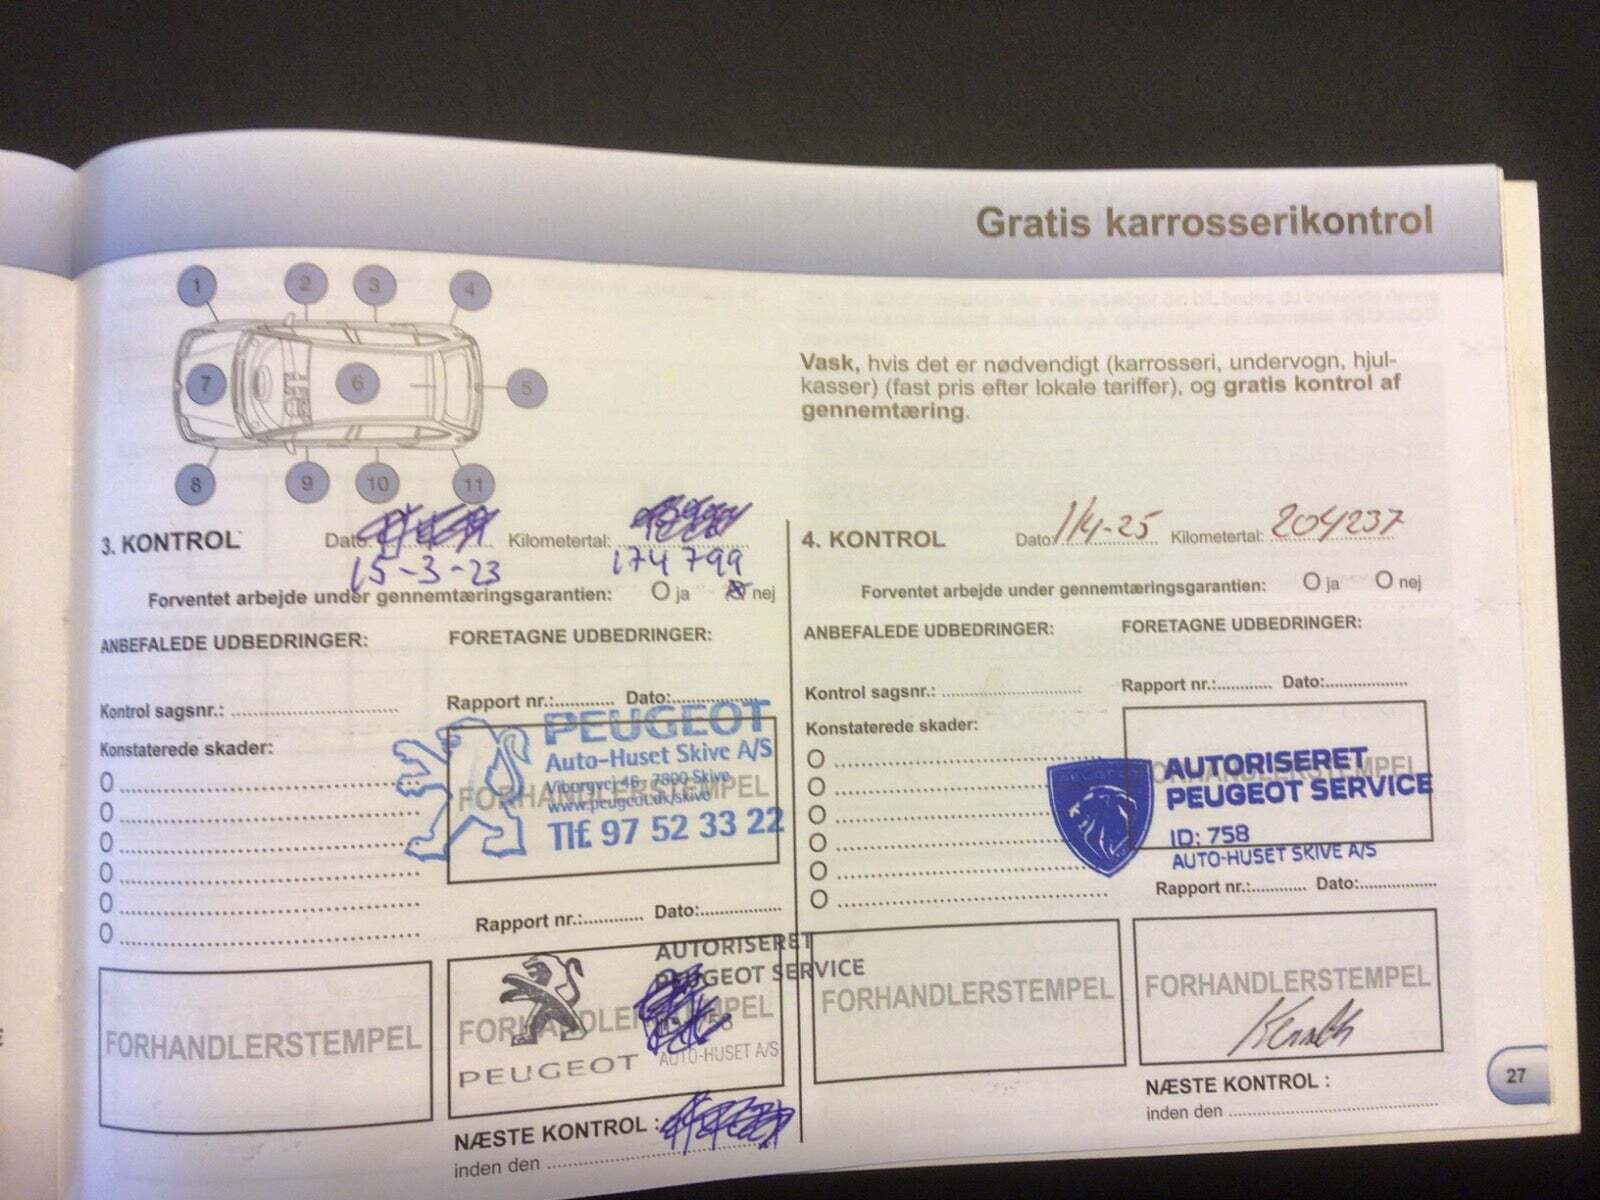 Gratis karrosserikontrol
1
2
3
4
7
6
5
8
9
10
11
Vask, hvis det er nødvendigt (karrosseri, undervogn, hjul-
kasser) (fast pris efter lokale tariffer), og gratis kontrol af
gennemtæring.
3. KONTROL Dato: Kilometertal:
15-3-23 174 799
Forventet arbejde under gennemtæringsgarantien: ja nej
ANBEFALEDE UDBEDRINGER: FORETAGNE UDBEDRINGER:
Kontrol sagsnr.: Rapport nr.: Dato:
Konstaterede skader:
PEUGEOT
Auto-Huset Skive A/S
Viborgvej 46, 7800 Skive
www.peugeot.dk/skive
FORHANDLERSTEMPEL
Tlf. 97 52 33 22
Rapport nr.: Dato:
FORHANDLERSTEMPEL
AUTORISERET
PEUGEOT SERVICE
FORHANDLERSTEMPEL
AUTO-HUSET A/S
PEUGEOT
NÆSTE KONTROL :
inden den
4. KONTROL Dato: 1/4-25 Kilometertal: 204237
Forventet arbejde under gennemtæringsgarantien: ja nej
ANBEFALEDE UDBEDRINGER: FORETAGNE UDBEDRINGER:
Kontrol sagsnr.: Rapport nr.: Dato:
Konstaterede skader:
FORHANDLERSTEMPEL
AUTORISERET
PEUGEOT SERVICE
ID: 758
AUTO-HUSET SKIVE A/S
Rapport nr.: Dato:
FORHANDLERSTEMPEL
FORHANDLERSTEMPEL
NÆSTE KONTROL :
inden den
27